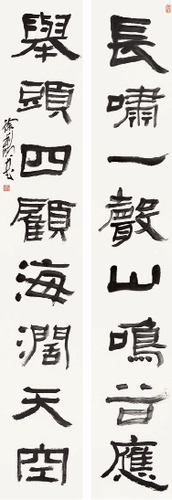 長嘯一聲山鳴谷應
舉頭四顧海濶天空